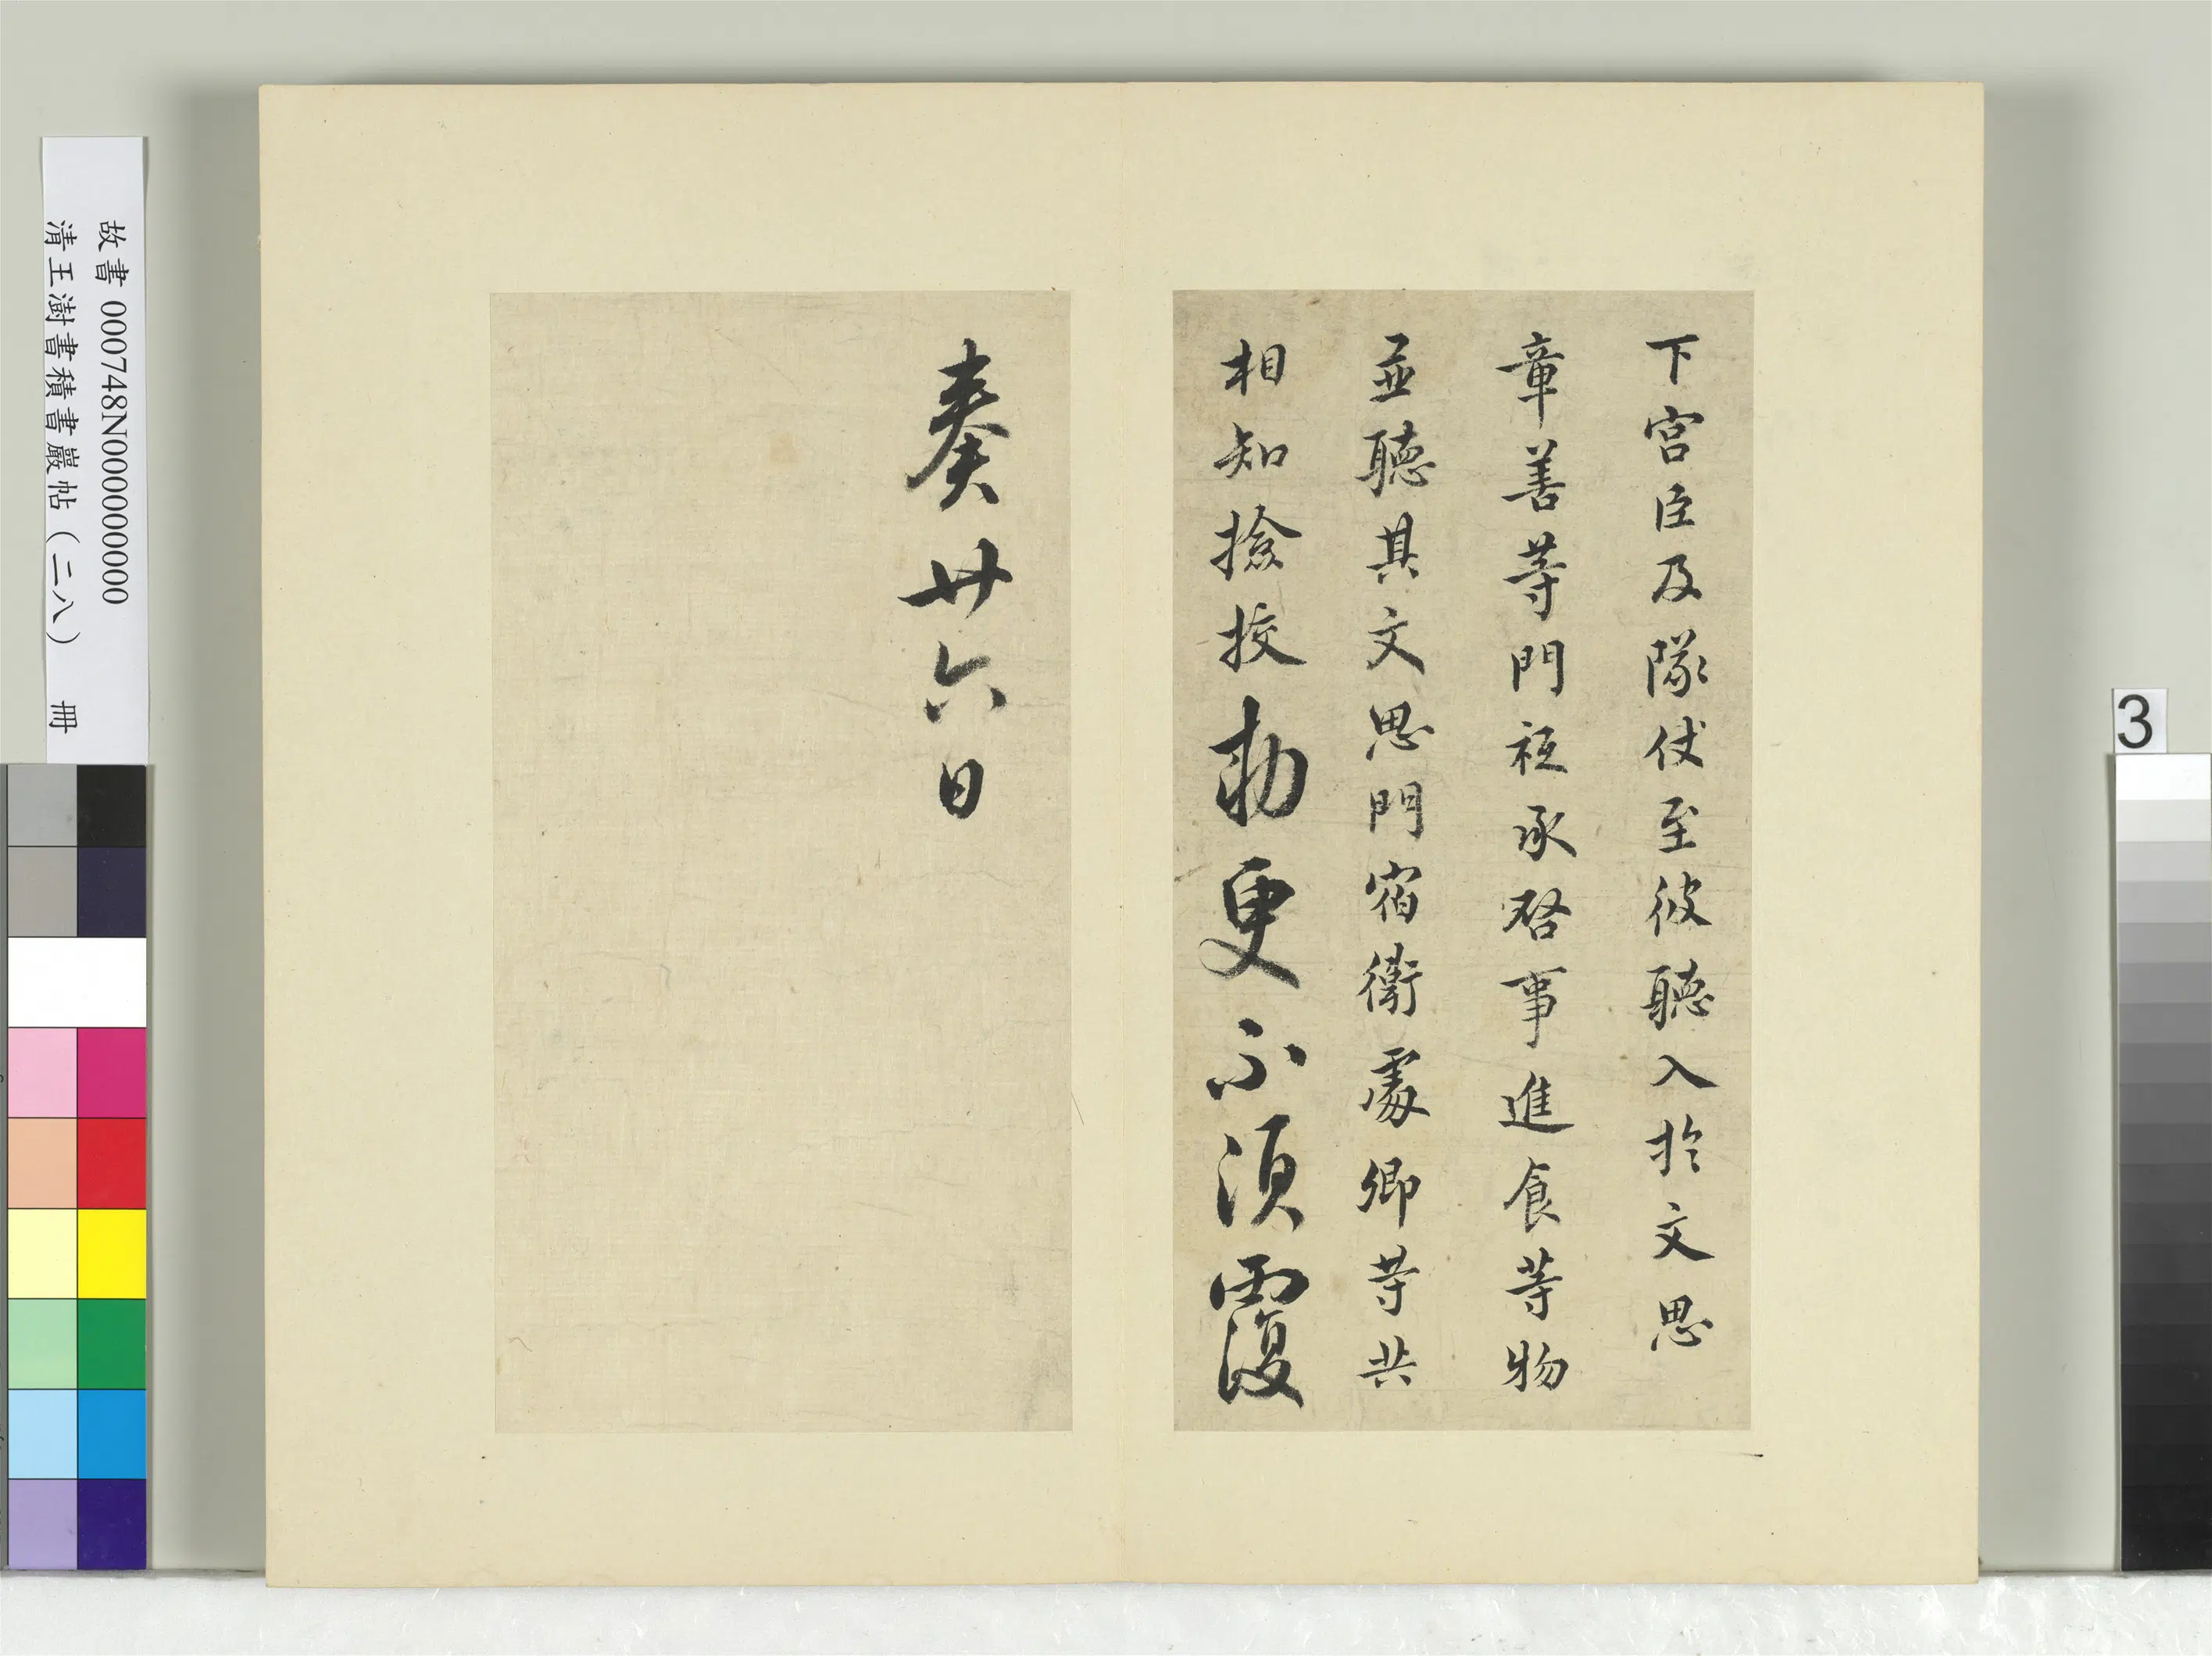 下宮臣及隊仗至彼聽入於文思
章善等門祗承啓事進食等物
並聽其文思門宿衛處卿等共
相知撿挍勅更不須覆
奏廿六日
故書 000748N000000000
清王澍書積書巖帖（二八） 冊
3